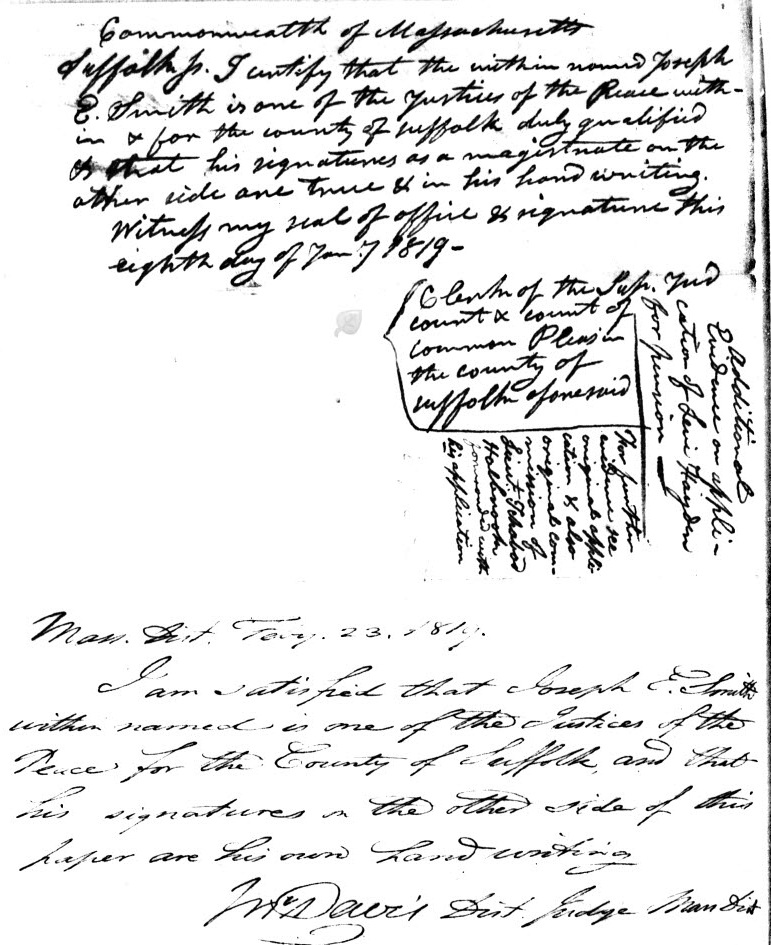 Commonwealth of Massachusetts
Suffolk ss. I certify that the within named Joseph
E. Smith is one of the Justices of the Peace with-
in & for the county of suffolk duly qualified
& that his signatures as a magistrate on the
other side are true & in his hand writing.
Witness my seal of office & signature this
eighth day of Jany 1819-
Clerk of the Sup. Jud
court & court of
common Pleas in
the county of
suffolk aforesaid
Additional
Evidence on appli-
cation of Levi Hayden
for pension
For further
evidence see
original appli-
cation & also
original com-
mission of
Lieut Ichabod
Holbrook
forwarded with
his application
Mass. Dist. 23. 1819.
I am satisfied that Joseph E. Smith
within named is one of the Justices of the
Peace for the County of Suffolk, and that
his signatures on the other side of this
paper are his own hand writing
Davis Dist Judge Mass Dist